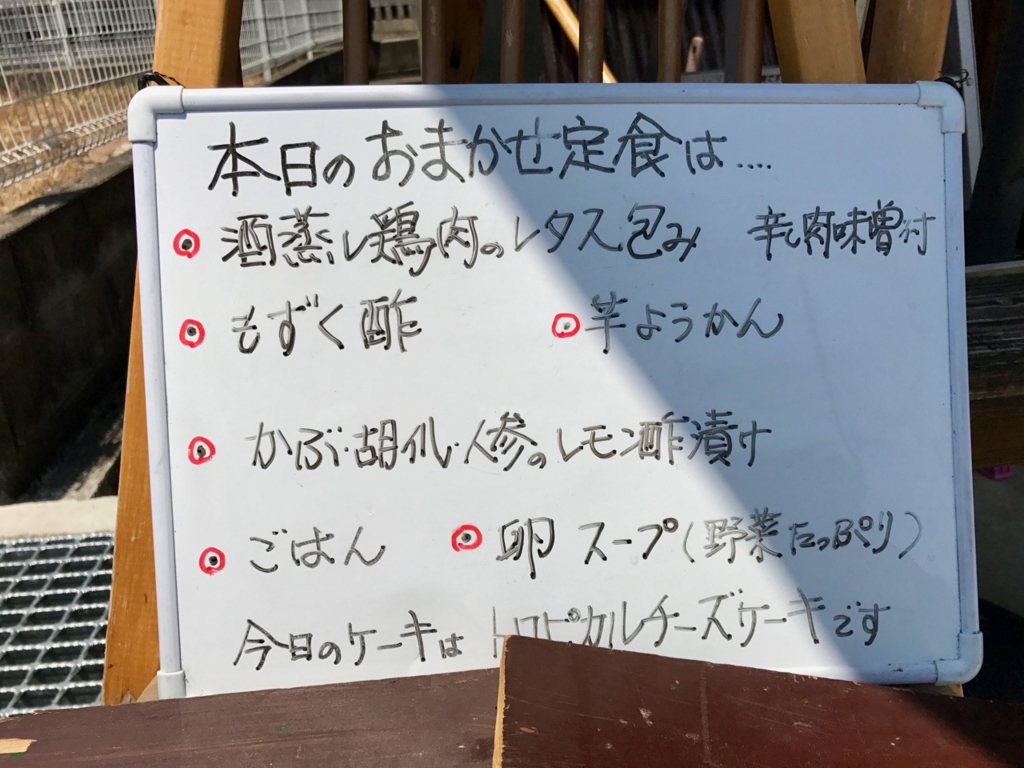 本日のおまかせ定食は....
酒蒸し鶏肉のレタス包み 辛し肉味噌付
もずく酢 芋ようかん
かぶ・胡瓜・人参のレモン酢漬け
ごはん 卵スープ(野菜たっぷり)
今日のケーキは トロピカルチーズケーキです